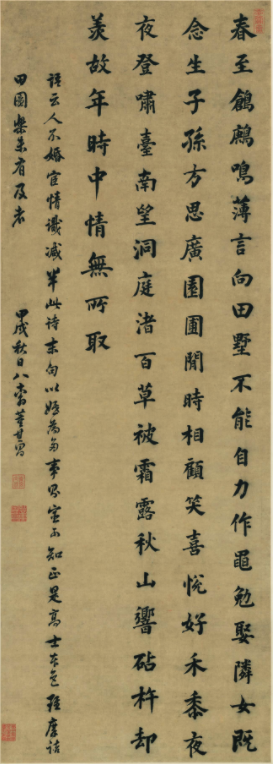 春至鶬鶊鳴薄言向田墅不能自力作黽勉娶隣女既
念生子孫方思廣園圃閒時相顧笑喜悅好禾黍夜
夜登嘯臺南望洞庭渚百草被霜露秋山響砧杵却
羨故年時中情無所取
語云人不婚宦情識減半此詩末句以為多事不知正是高士本色雖摩詰
田園樂未有及者
甲戌秋日八董其昌